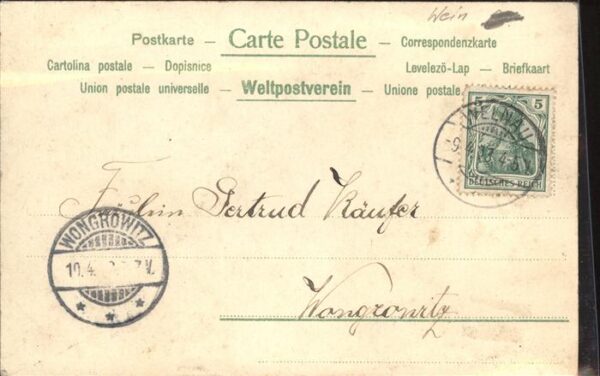 Wein
Postkarte — Carte Postale — Correspondenzkarte
Cartolina postale — Dopisnice Levelezö-Lap — Briefkaart
Union postale universelle — Weltpostverein — Unione postale
5 5
DEUTSCHES REICH
Fräulein Gertrud Käufer
WONGROWITZ
10.4. 7V.
Wongrowitz